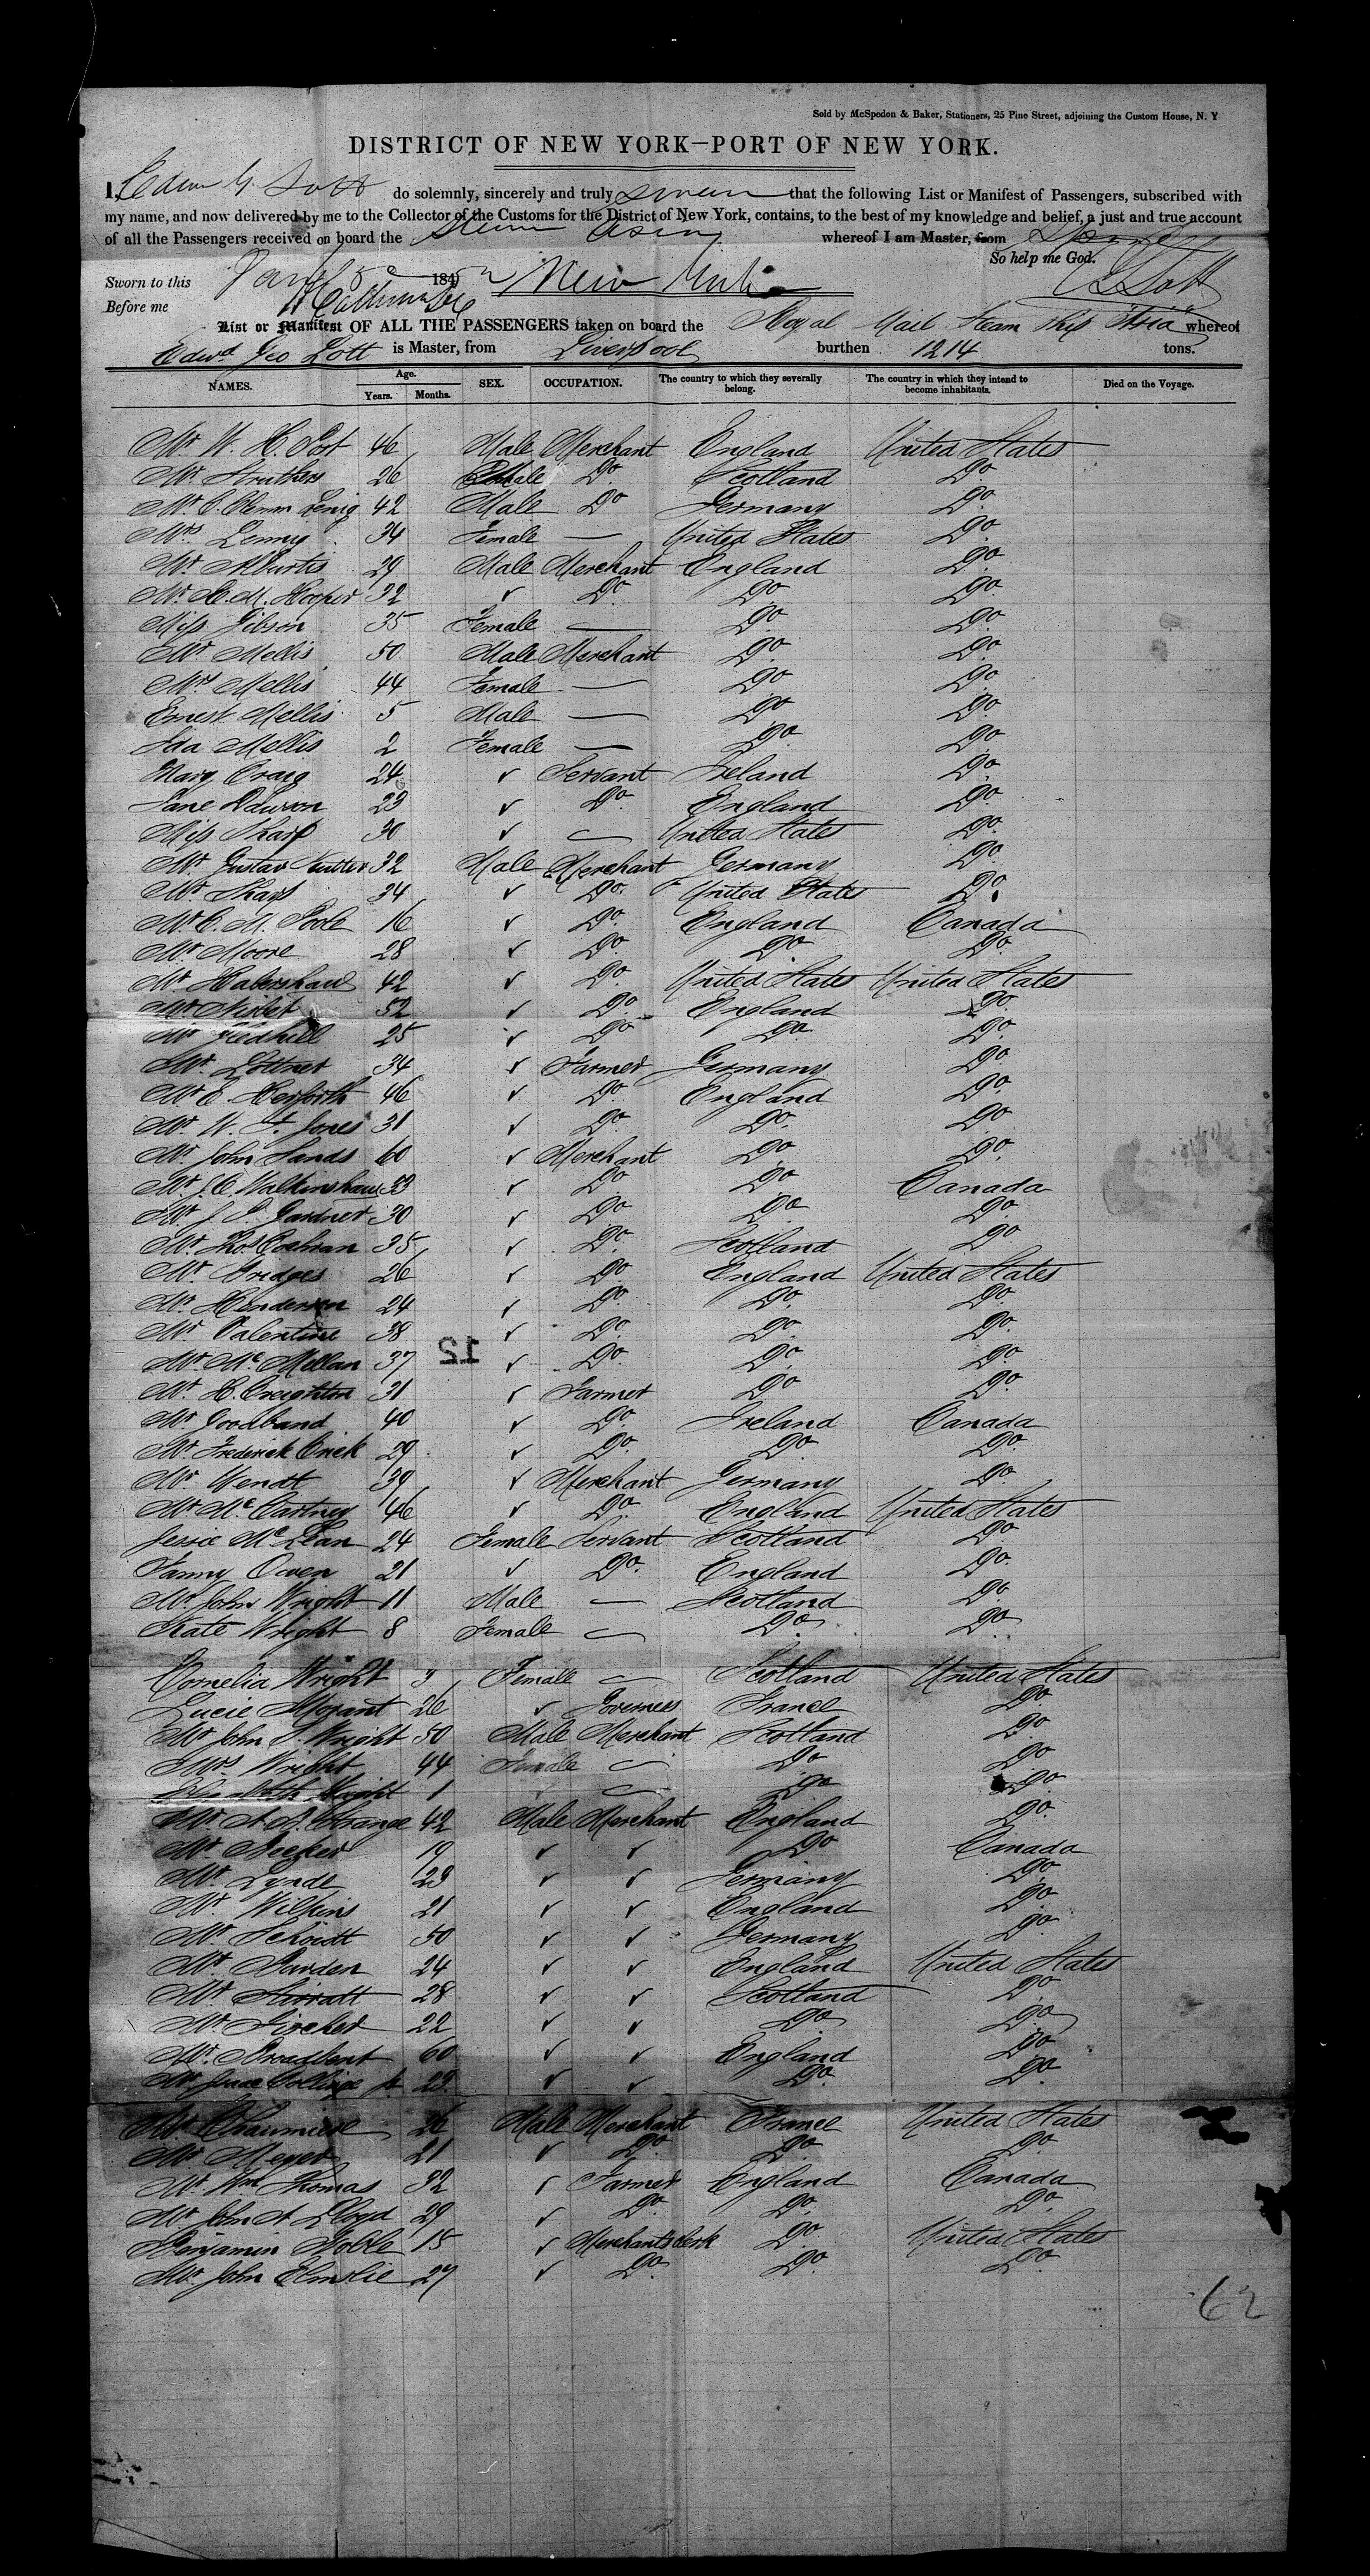 Sold by McSpedon & Baker, Stationers, 25 Pine Street, adjoining the Custom House, N. Y
DISTRICT OF NEW YORK—PORT OF NEW YORK.
I, do solemnly, sincerely and truly swear that the following List or Manifest of Passengers, subscribed with
my name, and now delivered by me to the Collector of the Customs for the District of New York, contains, to the best of my knowledge and belief, a just and true account
of all the Passengers received on board the Steam Asia whereof I am Master, from
So help me God.
Sworn to this 184
Before me
List or Manifest OF ALL THE PASSENGERS taken on board the Royal Mail Steam Ship "Asia" whereof
Edwd Geo Lott is Master, from Liverpool burthen 1214 tons.
NAMES. Age. Years. Months. SEX. OCCUPATION. The country to which they severally belong. The country in which they intend to become inhabitants. Died on the Voyage.
Mr W. H. Post 46 Male Merchant England United States
Mr Struthers 26 Male Do Scotland Do
Mr C. 42 Male Do Germany Do
Mrs 34 Female — United States Do
Mr 29 Male Merchant England Do
Mr H. M. Hooper 32 ✓ Do Do Do
Miss Gibson 35 Female — Do Do
Mr Mellis 50 Male Merchant Do Do
Mrs Mellis 44 Female — Do Do
Ernest Mellis 5 Male — Do Do
Ida Mellis 2 Female — Do Do
Mary Craig 24 ✓ Servant Ireland Do
Jane Dawson 23 ✓ Do England Do
Miss Sharp 30 ✓ — United States Do
Mr Gustav 32 Male Merchant Germany Do
Mr Sharp 34 ✓ Do United States Do
Mr C. M. Poole 16 ✓ Do England Canada
Mr Moore 28 ✓ Do Do Do
Mr Habershaw 42 ✓ Do United States United States
Mr Nisbet 52 ✓ Do England Do
Mr Gledhill 25 ✓ Do Do Do
Mr Lottner 34 ✓ Farmer Germany Do
Mr E. Hesforth 46 ✓ Do England Do
Mr W. F. Jones 31 ✓ Do Do Do
Mr John Sands 60 ✓ Merchant Do Do
Mr J. C. Walkinshaw 33 ✓ Do Do Canada
Mr J. P. Gardner 30 ✓ Do Do Do
Mr Thos Cochran 35 ✓ Do Scotland Do
Mr Bridges 26 ✓ Do England United States
Mr Henderson 24 ✓ Do Do Do
Mr Valentine 38 ✓ Do Do Do
Mr McMellan 37 12 ✓ Do Do Do
Mr H. Creighton 31 ✓ Farmer Do Do
Mr Goodband 40 ✓ Do Ireland Canada
Mr Frederick Crick 29 ✓ Do Do Do
Mr Wendt 39 ✓ Merchant Germany Do
Mr McCartney 46 ✓ Do England United States
Jessie McLean 24 Female Servant Scotland Do
Fanny Owen 21 ✓ Do England Do
Mr John Wright 11 Male — Scotland Do
Kate Wright 8 Female — Do Do
Cornelia Wright 3 Female — Scotland United States
Lucie Morant 26 ✓ Governess France Do
Mr John S. Wright 50 Male Merchant Scotland Do
Mrs Wright 44 Female — Do Do
Elizabeth Wright 1 ✓ — Do Do
Mr A. P. Strange 42 Male Merchant England Do
Mr 19 ✓ ✓ Do Canada
Mr Lynde 23 ✓ ✓ Germany Do
Mr Wilkins 21 ✓ ✓ England Do
Mr 50 ✓ ✓ Germany Do
Mr 24 ✓ ✓ England United States
Mr Stirratt 28 ✓ ✓ Scotland Do
Mr Fischer 22 ✓ ✓ Do Do
Mr Broadbent 60 ✓ ✓ England Do
Mr Collinge jr 23 ✓ ✓ Do Do
Mr Chaumiere 26 Male Merchant France United States
Mr Meyer 21 ✓ Do Do Do
Mr Wm Thomas 32 ✓ Farmer England Canada
Mr John A Lloyd 29 ✓ Do Do Do
Benjamin Noble 15 ✓ Merchants clerk Do United States
Mr John Elmslie 27 ✓ Do Do Do
62